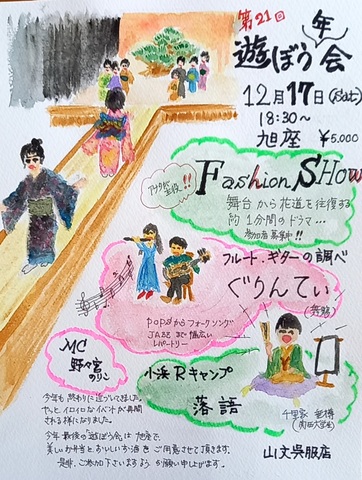 第21回
遊ぼう年会
12月17日(Sat)
18:30～
旭座 ¥5,000
アナタが主役!!
Fashion SHOW
舞台から花道を往復する
約1分間のドラマ...
参加者募集中!!
フルート.ギターの調べ
ぐりんてぃ
POPSからフォークソング
JAZZまで幅広い
レパートリー
MC
野々宮
のりこ
小浜Rキャンプ
落語
今年も終わりに近づいてきました。
やっとイロイロなイベントが再開
される様になりました。
今年最後の「遊ぼう会」は旭座で、
美しいお弁当とおいしいお酒をご用意させて頂きます。
是非、ご参加下さいますようお願い申し上げます。
山文呉服店